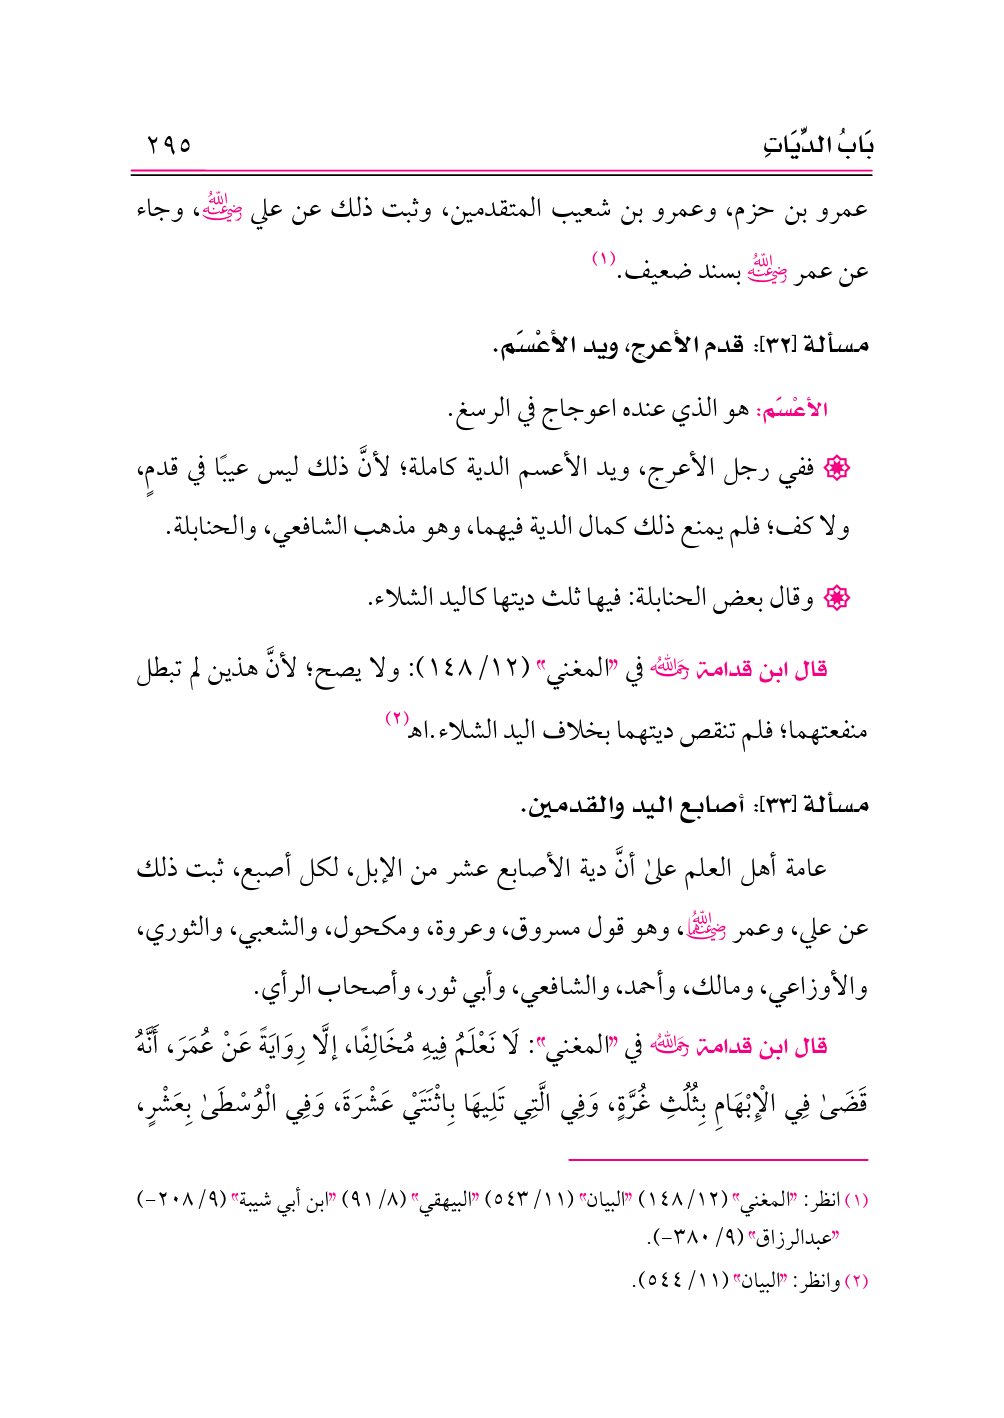 بَابُ الدِّيَاتِ ٢٩٥
عمرو بن حزم، وعمرو بن شعيب المتقدمين، وثبت ذلك عن علي رضي الله عنه، وجاء
عن عمر رضي الله عنه بسند ضعيف.(١)
مسألة [٣٢]: قدم الأعرج، ويد الأعْسَم.
الأعْسَم: هو الذي عنده اعوجاج في الرسغ.
ففي رجل الأعرج، ويد الأعسم الدية كاملة؛ لأنَّ ذلك ليس عيبًا في قدمٍ،
ولا كف؛ فلم يمنع ذلك كمال الدية فيهما، وهو مذهب الشافعي، والحنابلة.
وقال بعض الحنابلة: فيها ثلث ديتها كاليد الشلاء.
قال ابن قدامة رحمه الله في "المغني" (١٢/ ١٤٨): ولا يصح؛ لأنَّ هذين لم تبطل
منفعتهما؛ فلم تنقص ديتهما بخلاف اليد الشلاء.اهـ(٢)
مسألة [٣٣]: أصابع اليد والقدمين.
عامة أهل العلم علىٰ أنَّ دية الأصابع عشر من الإبل، لكل أصبع، ثبت ذلك
عن علي، وعمر رضي الله عنهما، وهو قول مسروق، وعروة، ومكحول، والشعبي، والثوري،
والأوزاعي، ومالك، وأحمد، والشافعي، وأبي ثور، وأصحاب الرأي.
قال ابن قدامة رحمه الله في "المغني": لَا نَعْلَمُ فِيهِ مُخَالِفًا، إلَّا رِوَايَةً عَنْ عُمَرَ، أَنَّهُ
قَضَىٰ فِي الْإِبْهَامِ بِثُلُثِ غُرَّةٍ، وَفِي الَّتِي تَلِيهَا بِاثْنَتَيْ عَشْرَةَ، وَفِي الْوُسْطَىٰ بِعَشْرٍ،
(١) انظر: "المغني" (١٢/ ١٤٨) "البيان" (١١/ ٥٤٣) "البيهقي" (٨/ ٩١) "ابن أبي شيبة" (٩/ ٢٠٨-)
"عبدالرزاق" (٩/ ٣٨٠-).
(٢) وانظر: "البيان" (١١/ ٥٤٤).